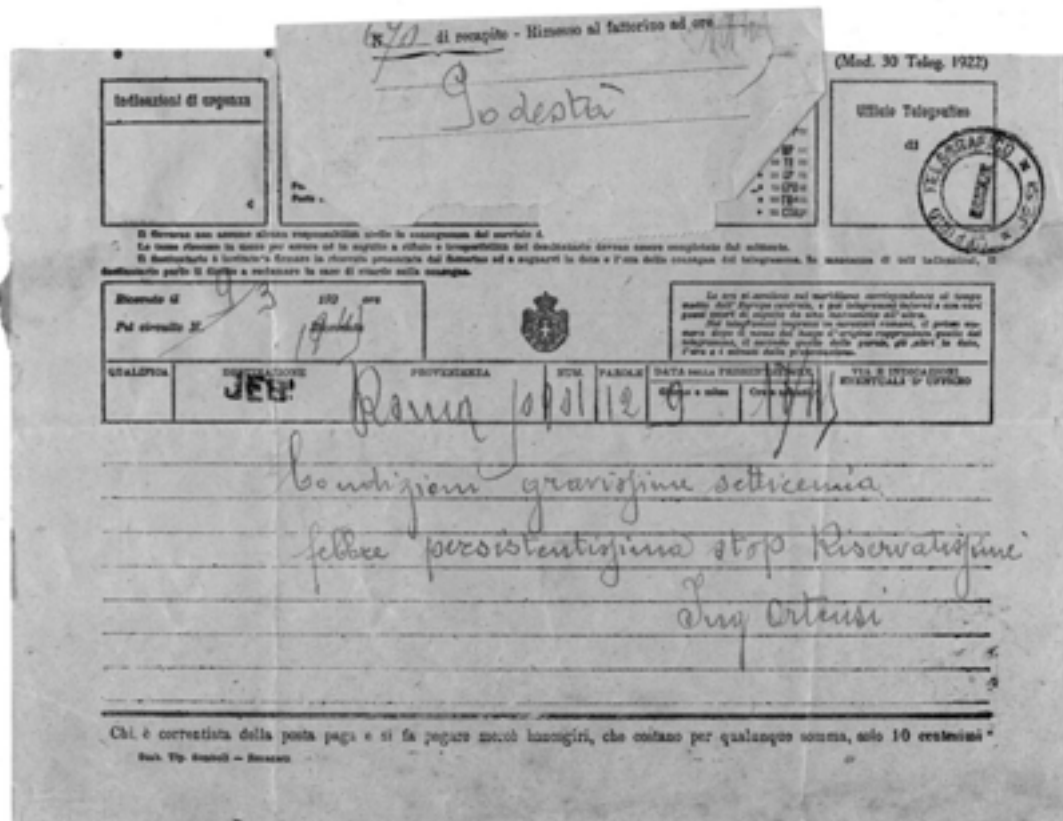 di recapito - Rimesso al fattorino ad ore
Podestà
(Mod. 30 Teleg. 1922)
Indicazioni di urgenza
Ufficio Telegrafico
di
Il Governo non assume alcuna responsabilità civile in conseguenza del servizio
Le tasse riscosse in meno per errore od in seguito a rifiuto o irreperibilità del destinatario devono essere completate dal mittente.
Il destinatario è invitato a firmare la ricevuta presentata dal fattorino ed a segnarvi la data e l'ora della consegna del telegramma. In mancanza di tali indicazioni, il
destinatario perde il diritto a reclamare in caso di ritardo nella consegna.
Ricevuto il 9/3 192 ore
Pel circuito N.
Le ore si contano sul meridiano corrispondente al tempo
medio dell'Europa centrale
QUALIFICA DESTINAZIONE PROVENIENZA NUM. PAROLE DATA DELLA PRESENTAZIONE VIA E INDICAZIONI EVENTUALI D'UFFICIO
Giorno e mese Ore e minuti
Roma 12 9
Condizioni gravissime setticemia
febbre persistentissima stop Riservatissime
Ing Ortensi
Chi è correntista della posta paga e si fa pagare mercè bancogiri, che costano per qualunque somma, solo 10 centesimi